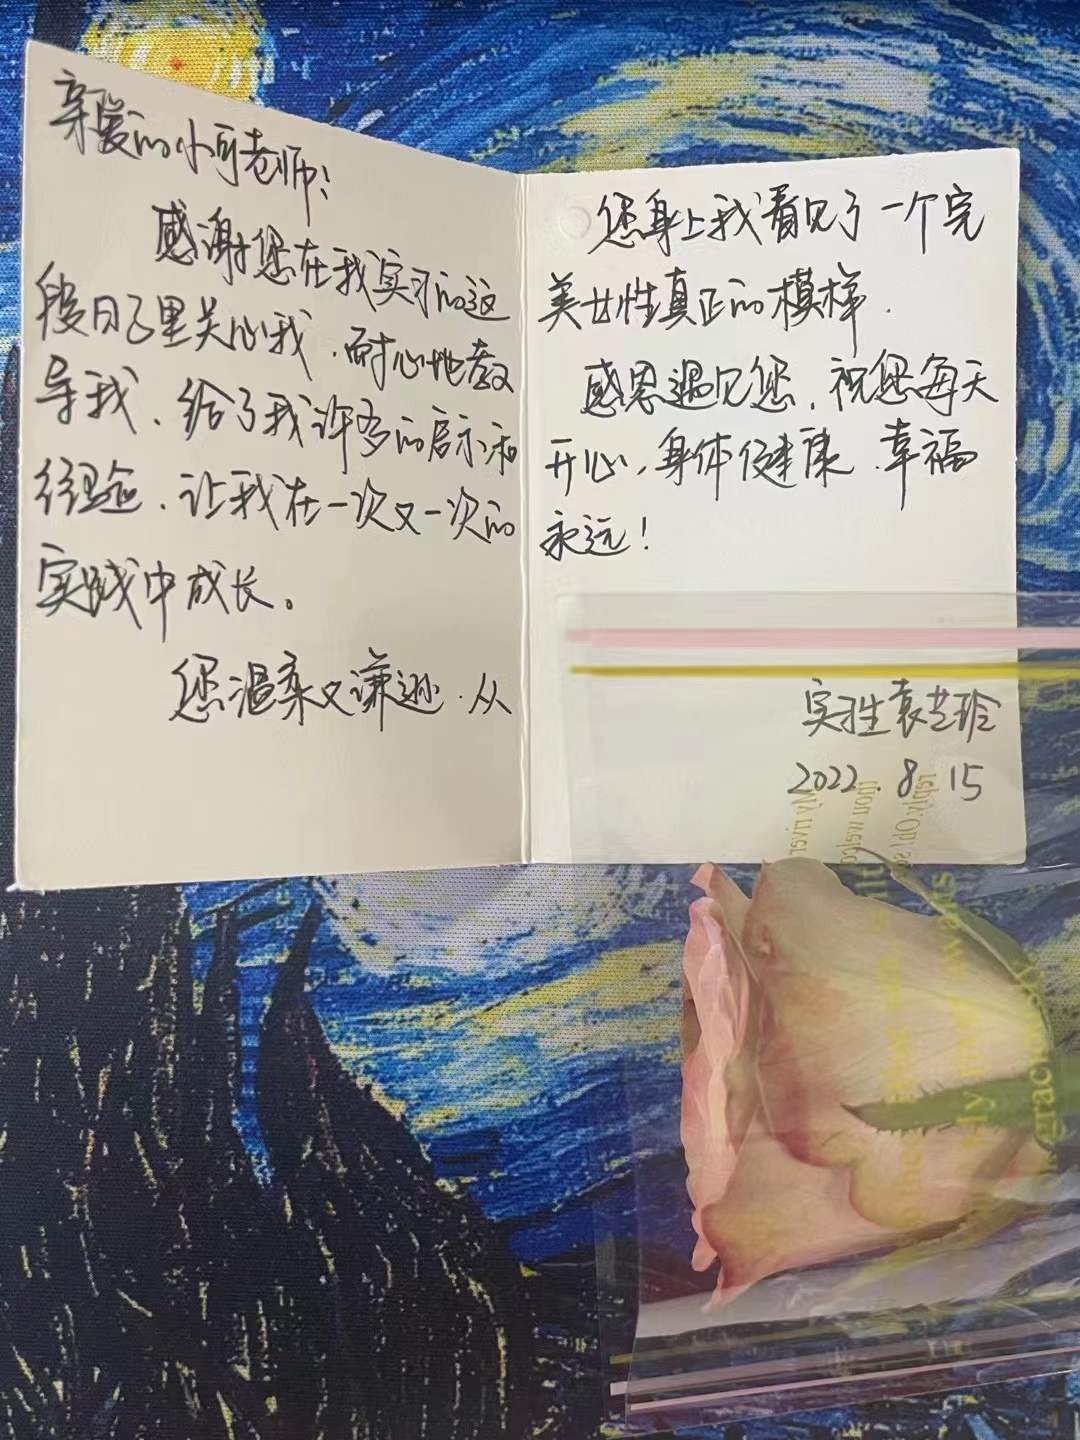 亲爱的小可老师：
感谢您在我实习的这
段日子里关心我.耐心地教
导我、给了我许多的启示和
经验、让我在一次又一次的
实践中成长。
您温柔又谦逊.从
您身上我看见了一个完
美女性真正的模样.
感恩遇见您，祝您每天
开心，身体健康.幸福
永远！
实习生袁芝玲
2022.8.15
reply: Oh! se
thou welco
My river